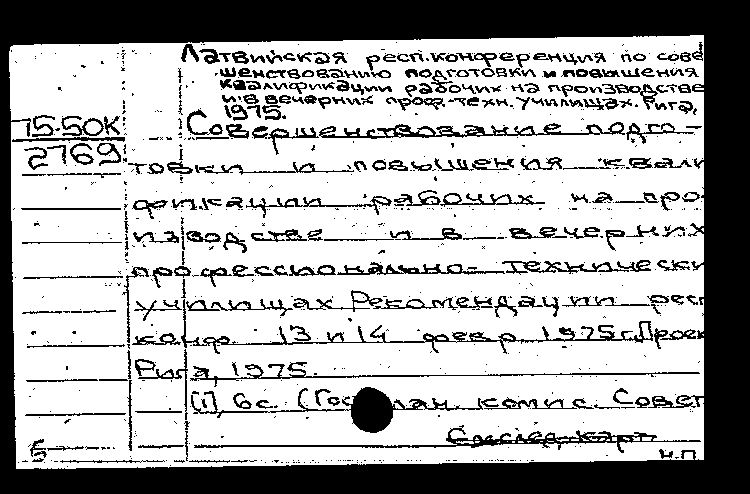 Латвийская респ.конференция по сове
шенствованию подготовки и повышения
квалификации рабочих на производстве
и в вечерних проф.-техн. училищах. Рига,
1975.
75-50К
2769
Совершенствование подго-
товки и повышения квали
фикации рабочих на про
изводстве и в вечерних
профессионально-технически
училищах Рекомендации респ
конф. 13 и 14 февр. 1975г.Проек
Рига, 1975.
[1], 6с. (Гос план. комис. Совет
См.след.карт.
Б
Н.П